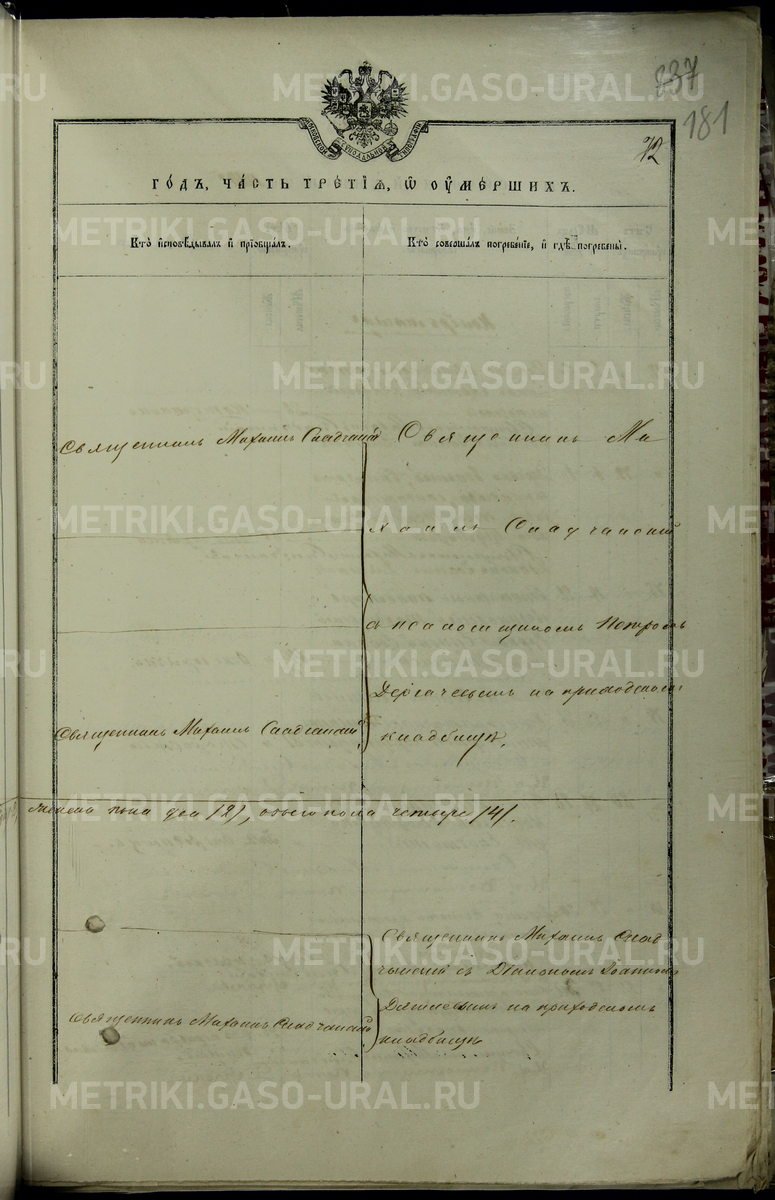 837
181
72
ГОДЪ, ЧАСТЬ ТРЕТІѦ, Ѡ ОУМЕРШИХЪ.
Кто исповѣдывалъ и пріобщалъ.
Кто совершалъ погребеніе, и гдѣ погребены.
Священникъ Михаилъ Сладчанскій
Священникъ Ми
хаилъ Сладчанскій
съ псаломщикомъ Петромъ
Дергачевымъ на приходскомъ
Священникъ Михаилъ Сладчанскій
кладбищѣ.
женска пола два /2/, обоего пола четыре /4/.
Священникъ Михаилъ Слад
чанскій съ Діакономъ Іоанномъ
на приходскомъ
Священникъ Михаилъ Сладчанскій
кладбищѣ
METRIKI.GASO-URAL.RU